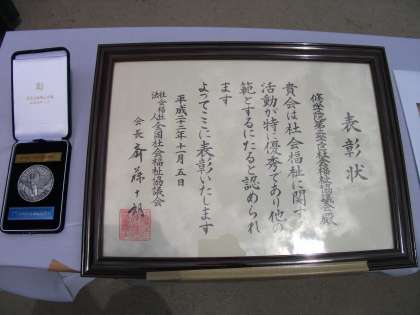 表彰状
修学院第二学区社会福祉協議会殿
貴会は社会福祉に関する
活動が特に優秀であり他の
範とするにたると認められ
ます
よってここに表彰いたします
平成二十二年十一月五日
社会福祉
法人 全国社会福祉協議会
会長 斎藤十朗